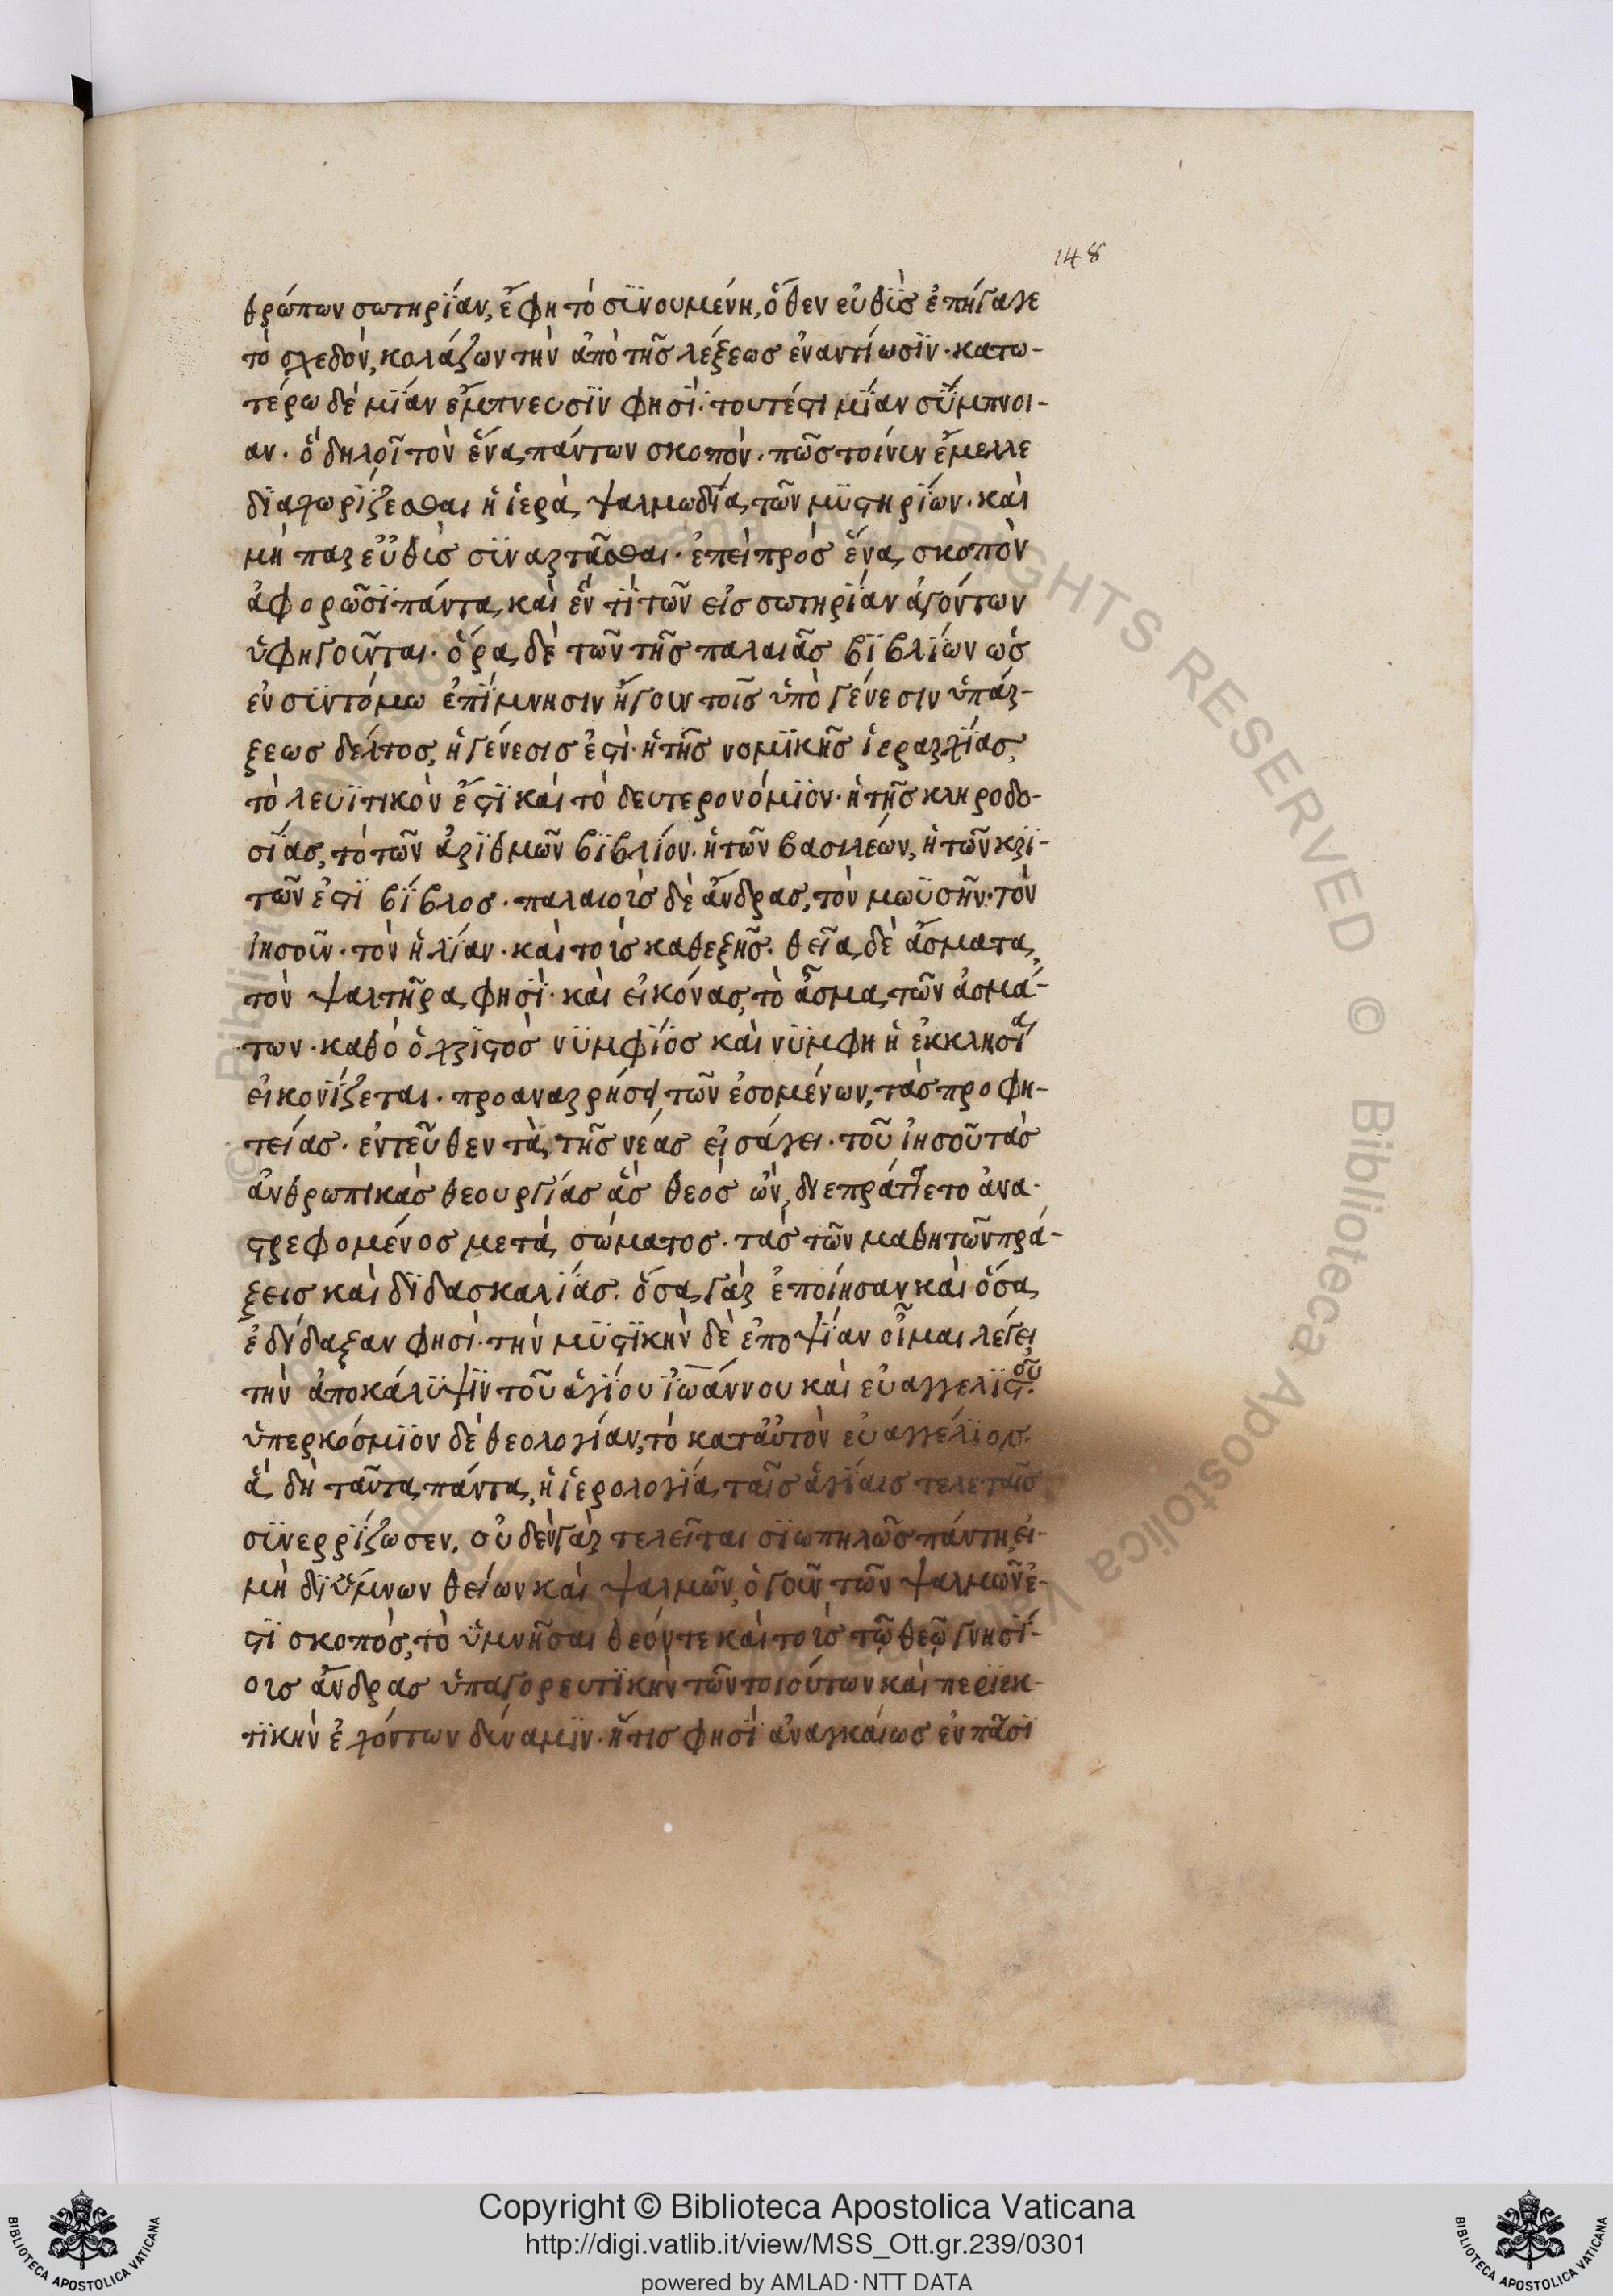 148
θρώπων σωτηρΐαν, ἔφη τὸ σϋνουμένη, ὅθεν εὐθὺς ἐπήγαγε
τὸ σχεδὸν, κολάζων τὴν ἀπὸ τῆς λέξεως ἐναντίωσϊν· κατω-
τέρω δὲ μΐαν ἔμπνευσϊν φησΐ· τουτέστι μΐαν σΰμπνοι-
αν· ὃ δηλοῖ τὸν ἕνα πάντων σκοπόν· πῶς τοίνυν ἔμελλε
δϊαχωρΐζεσθαι ἡ ἱερὰ ψαλμωδΐα τῶν μϋστηρΐων· καὶ
μὴ παρευθὺς σϋναρτᾶσθαι· ἐπεὶ πρὸς ἕνα σκοπὸν
ἀφορῶσϊ πάντα, καὶ ἕν τϊ τῶν εἰς σωτηρΐαν ἀγόντων
ὑφηγοῦνται· ὅρα δὲ τῶν τῆς παλαιᾶς βϊβλΐων ὡς
ἐν σϋντόμω ἐπΐμνησιν ἤγουν τοῖς ὑπὸ γένεσιν ὑπάρ-
ξεως δέλτος, ἡ γένεσις ἐστὶ· ἡ τῆς νομϊκῆς ἱεραρχΐας,
τὸ λευϊτικὸν ἔστϊ καὶ τὸ δευτερονόμϊον· ἡ τῆς κληροδο-
σΐας, τὸ τῶν ἀρϊθμῶν βϊβλΐον· ἡ τῶν βασιλέων, ἡ τῶν κρϊ-
τῶν ἐστϊ βΐβλος· παλαιοὺς δὲ ἄνδρας, τὸν μωϋσῆν· τὸν
ἰησοῦν· τὸν ἠλΐαν· καὶ τοὺς καθεξῆς· θεῖα δὲ ἄσματα,
τὸν ψαλτῆρα φησΐ· καὶ εἰκόνας, τὸ ἄσμα τῶν ἀσμά-
των· καθὸ ὁ χρϊστὸς νϋμφΐος καὶ νΰμφη ἡ ἐκκλησΐα
εἰκονΐζεται· προαναρρήσεις τῶν ἐσομένων, τὰς προφη-
τείας· ἐντεῦθεν τὰ τῆς νέας εἰσάγει· τοῦ ἰησοῦ τὰς
ἀνθρωπικὰς θεουργίας ἃς θεὸς ὢν, διεπράττετο ἀνα-
στρεφομένος μετὰ σώματος· τὰς τῶν μαθητῶν πρά-
ξεις καὶ δϊδασκαλΐας· ὅσα γὰρ ἐποίησαν καὶ ὅσα
ἐδίδαξαν φησὶ· τὴν μϋστϊκὴν δὲ ἐποψΐαν οἶμαι λέγει,
τὴν ἀποκάλϋψϊν τοῦ ἁγίου ϊωάννου καὶ εὐαγγελϊστοῦ·
ὑπερκόσμϊον δὲ θεολογίαν, τὸ κατ' αὐτὸν εὐαγγέλϊον·
ἃ δὴ ταῦτα πάντα, ἡ ἱερολογία ταῖς ἁγΐαις τελεταῖς
σϋνερρΐζωσεν, οὐδὲν γὰρ τελεῖται σϊωπηλῶς πάντη, εἰ-
μὴ δϊ' ὕμνων θείων καὶ ψαλμῶν, ὁ γοῦν τῶν ψαλμῶν ἐ-
στϊ σκοπὸς, τὸ ὑμνῆσαι θεόν τε καὶ τοὺς τῷ θεῷ γνησΐ-
ους ἄνδρας ὑπαγορευτϊκὴν τῶν τοιούτων καὶ περϊεκ-
τϊκὴν ἐχόντων δύναμϊν· ἥτις φησΐ ἀναγκαίως ἐν πᾶσϊ
Copyright © Biblioteca Apostolica Vaticana
http://digi.vatlib.it/view/MSS_Ott.gr.239/0301
powered by AMLAD·NTT DATA